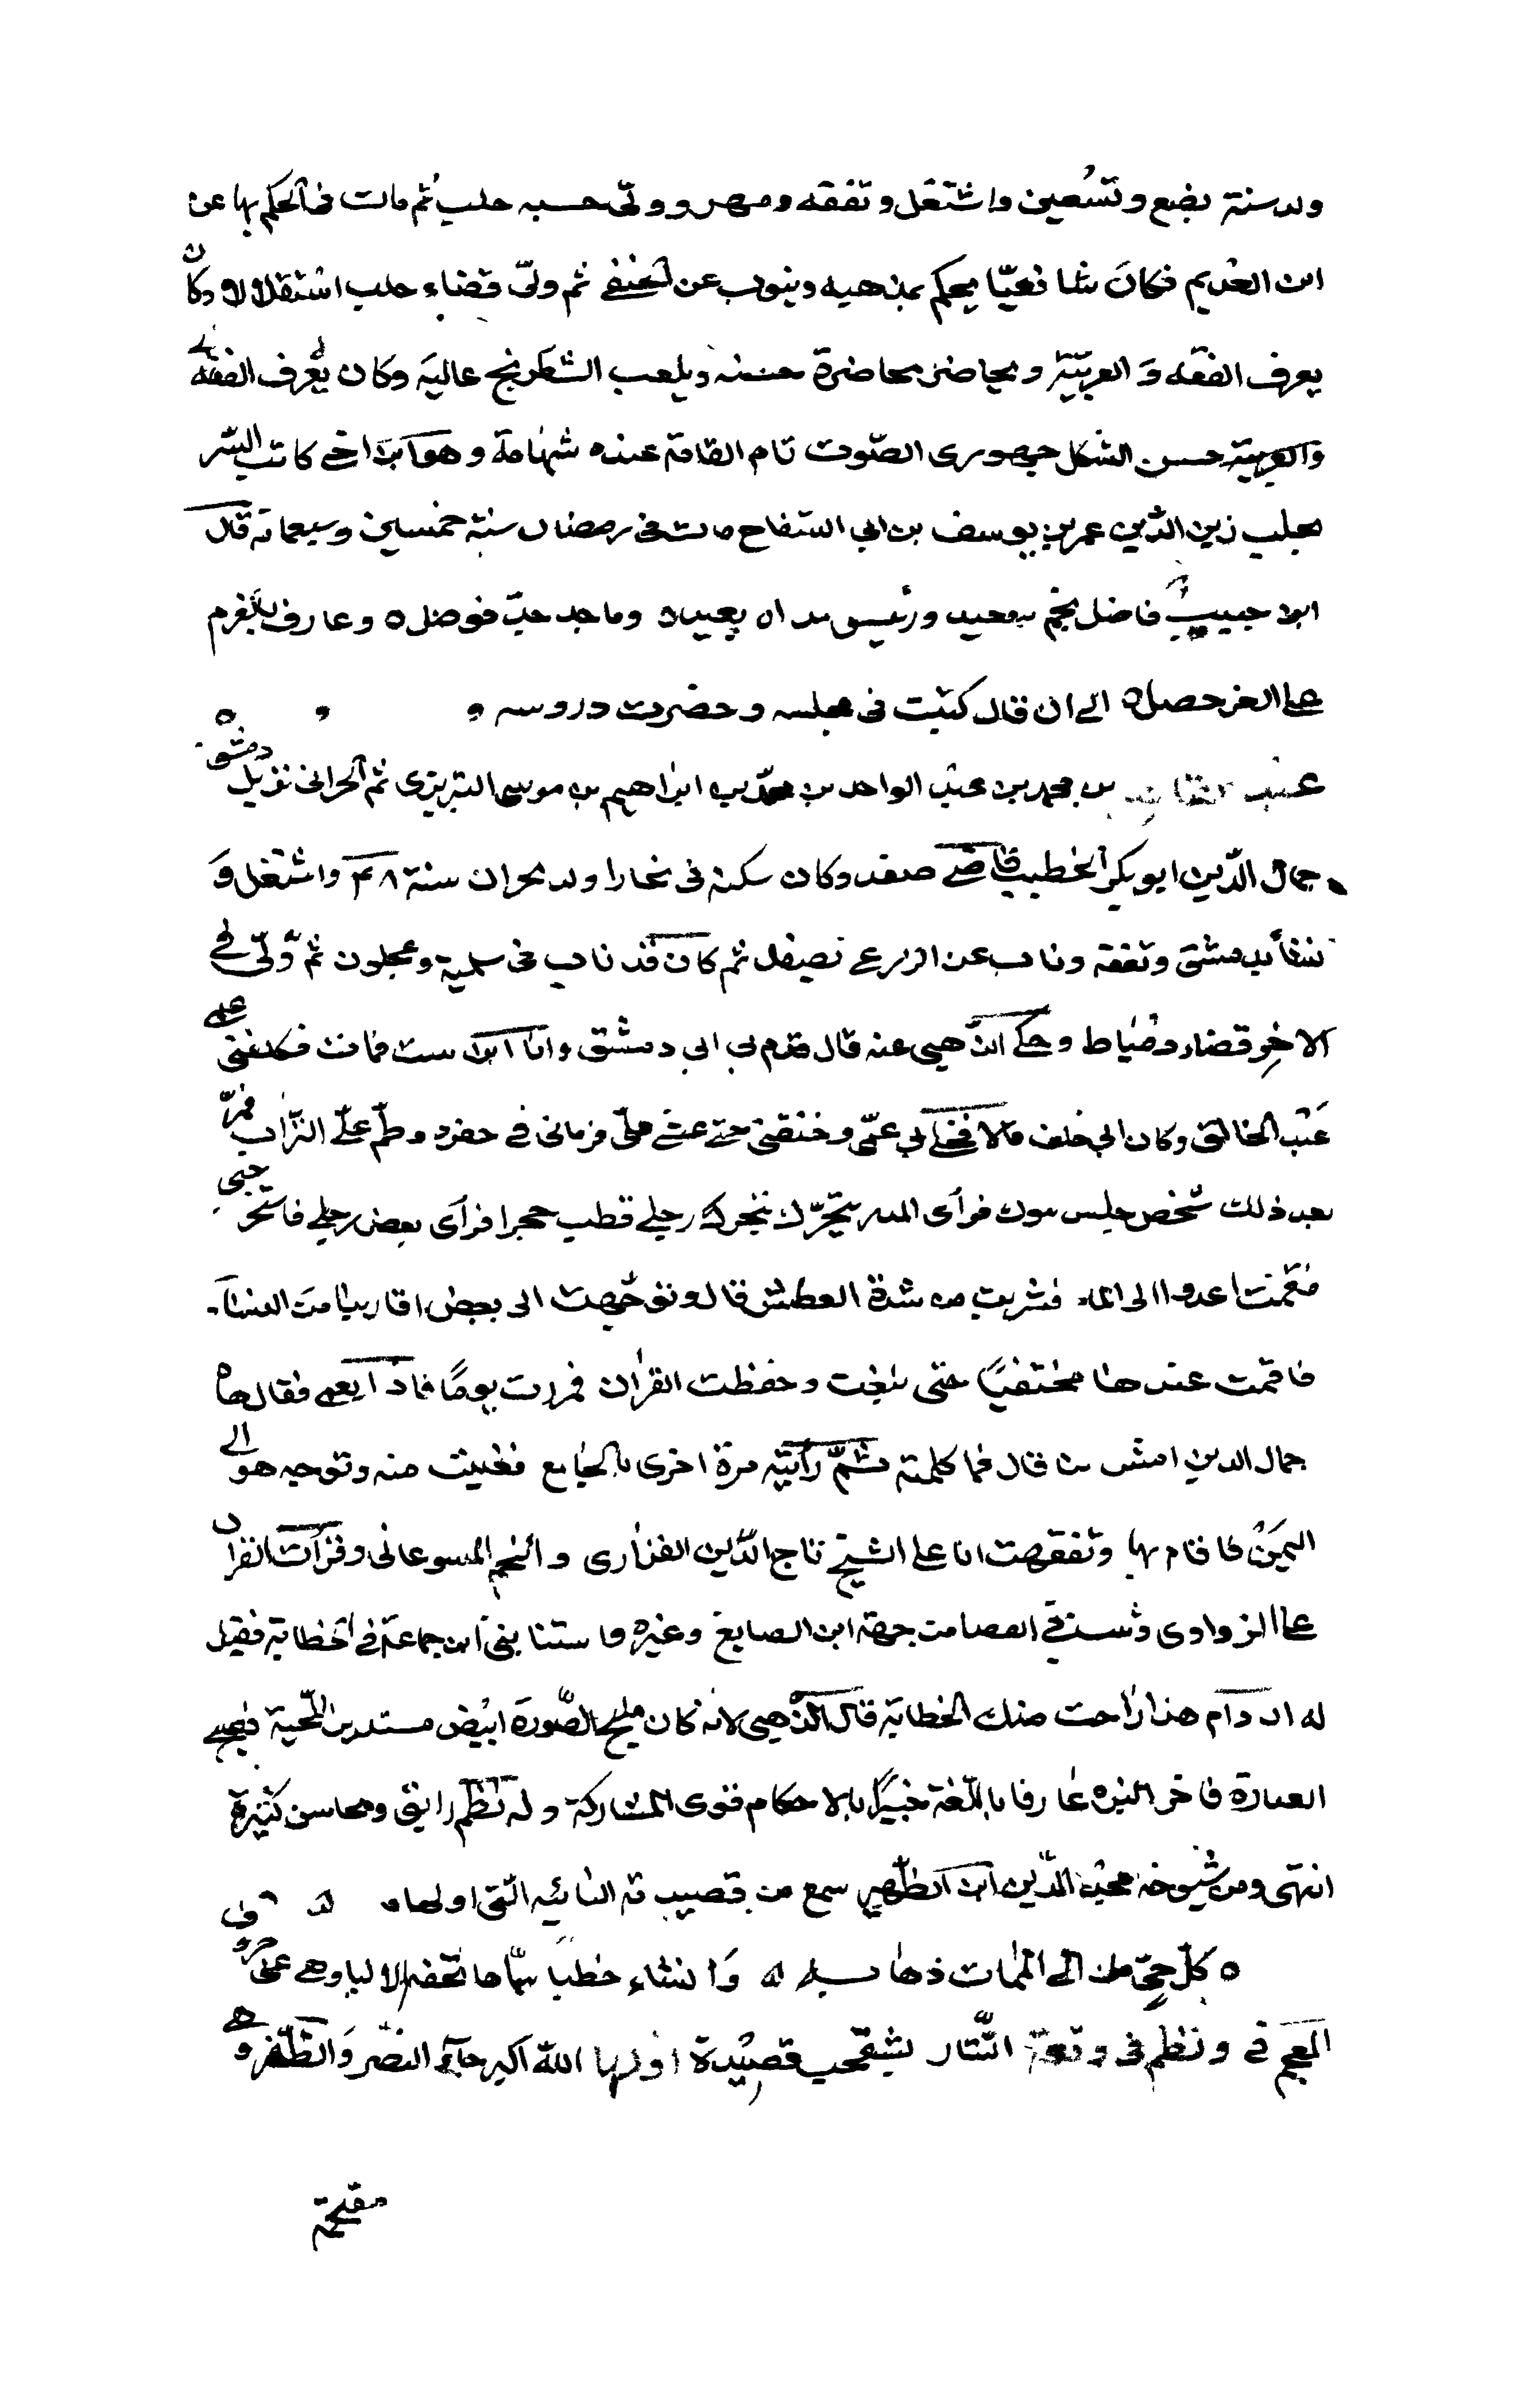 ولد سنة بضع وتسعين واشتغل وتفقه ومهر وولى حسبه حلب ثم مات فى الحكم بها عن
ابن العديم فكان شافعيّا يحكم بمذهبه وينوب عن الحنفى ثم ولىّ قضاء حلب استقلالا وكان
يعرف الفقه و العربيّة ويحاضر محاضرة حسنه ويلعب الشطرنج عاليه وكان يعرف الفقه
والعربية حسن الشكل جهورى الصّوت تام القامة عنده شهامة وهو ابن اخى كاتب السّر
بحلب زين الدّين عمر بن يوسف بن ابى السّفاح مات فى رمضان سنة خمسين وسبعماية قال
ابن حبيب فاضل نجم سعيد ورئيس وماجد وعارف
على العز حصل الى ان قال كنت فى مجلسه وحضرت دروسه
بن محمد بن عبد الواحد بن محمّد بن ابراهيم بن موسى التبريزى ثم الحرانى نزيل دمشق
جمال الدّين ابو بكر الخطيب قاضى صفد وكان سكن فى بخارا ولد بحران سنة ٤٨ واشتغل و
نشأ بدمشق وتفقه وناب عن الزرعى ثم كان قد ناب فى سلمية وعجلون ثم ولّى فى
الاخر قضاء دمياط وحكى الذهبى عنه قال قدم بى ابى دمشق وانا ابن ست فمات فكفلنى عمى
عبد الخالق وكان ابى خلف مالا فخلى بى عمّى وخنقنى حتى غشى علىّ فرمانى فى حفرة وطم علىّ التراب فمرّ
بعد ذلك شخص جلس يبول فرأى المدر يتحرّك رجلى فقلب حجرا فرأى بعض رجلى فاستخرجنى
فقمت اعدوا الى الماء فشربت من شدة العطش قال وتوجّهت الى بعض اقاربنا من النساء
فاقمت عندها مختفيًا حتى بلغت وحفظت القران فمررت يومًا فاذا بعمى فقال هاه
جمال الدين امش بنا قال فما كلمته ثمّ رأيته مرة اخرى بالجامع فغبت منه وتوجه هو الى
اليمن فاقام بها وتفقهت انا على الشيخ تاج الدّين الفزارى والنجم الموسوعانى وقرأت القران
على الزواوى من جهة ابن الصايغ وغيره واستنابنى ابن جماعة فى الخطابة فقيل
له ان دام هذا راحت منك الخطابة قال الذهبى لانه كان مليح الصّورة ابيض مستدير اللّحية فصيح
العبارة فاخر البزه عارفا باللّغة خبيرًا بالاحكام قوى المشاركة وله نظم رايق ومحاسن كثيرة
انتهى ومن شيوخه مجد الدّين ابن الظّهير سمع من قصيدته البائيه الّتى اولها
كلّ حىّ الى الممات ذهابه وانشاء خطبا سمّاها تحفة الالبا وهى على حروف
المعجم ونظم فى وقعة التّتار بشقحب قصيدة اولها الله اكبر جآء النصر والظّفر وهى